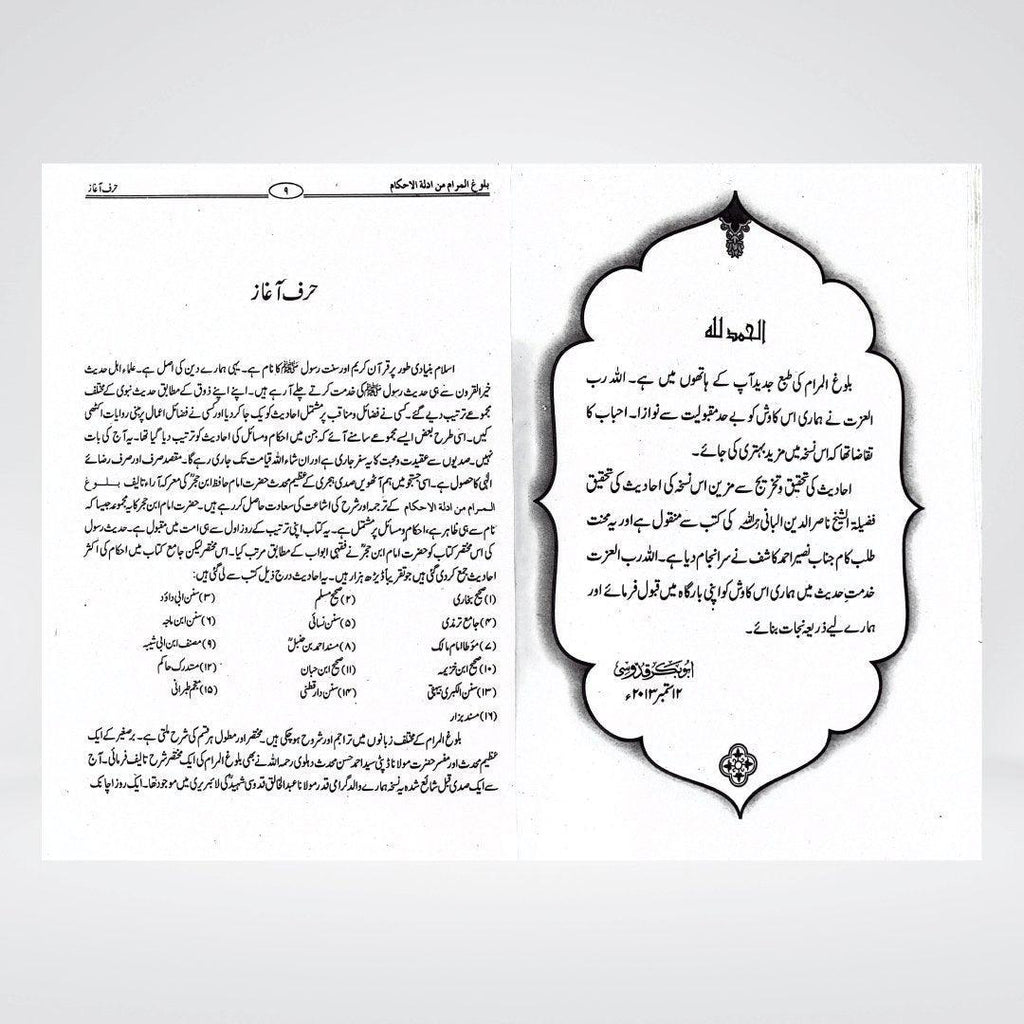 الحمد لله
بلوغ المرام کی طبع جدید آپ کے ہاتھوں میں ہے۔ اللہ رب
العزت نے ہماری اس کاوش کو بے حد مقبولیت سے نوازا۔ احباب کا
تقاضا تھا کہ اس نسخہ میں مزید بہتری کی جائے۔
احادیث کی تحقیق و تخریج سے مزین اس نسخہ کی احادیث کی تحقیق
فضیلۃ الشیخ ناصر الدین البانی رحمہ اللہ کی کتب سے منقول ہے اور یہ محنت
طلب کام جناب نصیر احمد کاشف نے سرانجام دیا ہے۔ اللہ رب العزت
خدمتِ حدیث میں ہماری اس کاوش کو اپنی بارگاہ میں قبول فرمائے اور
ہمارے لیے ذریعہ نجات بنائے۔
ابوبکر قدوسی
۱۲ ستمبر ۲۰۱۳ء
بلوغ المرام من ادلة الاحکام ۹ حرف آغاز
حرف آغاز
اسلام بنیادی طور پر قرآن کریم اور سنت رسول ﷺ کا نام ہے۔ یہی ہمارے دین کی اصل ہے۔ علماء اہل حدیث
خیر القرون سے ہی حدیث رسول ﷺ کی خدمت کرتے چلے آ رہے ہیں۔ اپنے اپنے ذوق کے مطابق حدیث نبوی کے مختلف
مجموعے ترتیب دیے گئے۔ کسی نے فضائل و مناقب پر مشتمل احادیث کو یک جا کر دیا اور کسی نے فضائل اعمال پر مبنی روایات اکٹھی
کیں۔ اسی طرح بعض ایسے مجموعے سامنے آئے کہ جن میں احکام و مسائل کی احادیث کو ترتیب دیا گیا تھا۔ یہ آج کی بات
نہیں۔ صدیوں سے عقیدت و محبت کا یہ سفر جاری ہے اور ان شاء اللہ قیامت تک جاری رہے گا۔ مقصد صرف اور صرف رضائے
الٰہی کا حصول ہے۔ اسی جستجو میں ہم آٹھویں صدی ہجری کے عظیم محدث حضرت امام حافظ ابن حجرؒ کی معرکہ آراء تالیف بلوغ
المرام من ادلة الاحکام کے ترجمہ اور شرح کی اشاعت کی سعادت حاصل کر رہے ہیں۔ حضرت امام ابن حجر کا یہ مجموعہ جیسا کہ
نام سے ہی ظاہر ہے، احکام و مسائل پر مشتمل ہے۔ یہ کتاب اپنی ترتیب کے روز اول سے ہی امت میں مقبول ہے۔ حدیث رسول
کی اس مختصر کتاب کو حضرت امام ابن حجرؒ نے فقہی ابواب کے مطابق مرتب کیا۔ اس مختصر لیکن جامع کتاب میں احکام کی اکثر
احادیث جمع کر دی گئی ہیں جو تقریباً ڈیڑھ ہزار ہیں۔ یہ احادیث درج ذیل کتب سے لی گئی ہیں:
(۱) صحیح بخاری (۲) صحیح مسلم (۳) سنن ابی داؤد
(۴) جامع ترمذی (۵) سنن نسائی (۶) سنن ابن ماجہ
(۷) مؤطا امام مالک (۸) مسند احمد بن حنبلؒ (۹) مصنف ابن ابی شیبہ
(۱۰) صحیح ابن خزیمہ (۱۱) صحیح ابن حبان (۱۲) مستدرک حاکم
(۱۳) سنن الکبریٰ بیہقی (۱۴) سنن دار قطنی (۱۵) معجم طبرانی
(۱۶) مسند بزار
بلوغ المرام کے مختلف زبانوں میں تراجم اور شروح ہو چکی ہیں۔ مختصر اور مطول ہر قسم کی شرح ملتی ہے۔ برصغیر کے ایک
عظیم محدث اور مفسر حضرت مولانا ڈپٹی سید احمد حسن محدث دہلوی رحمہ اللہ نے بھی بلوغ المرام کی ایک مختصر شرح تالیف فرمائی۔ آج
سے ایک صدی قبل شائع شدہ یہ نسخہ ہمارے والد گرامی قدر مولانا عبدالخالق قدوسی شہیدؒ کی لائبریری میں موجود تھا۔ ایک روز اچانک